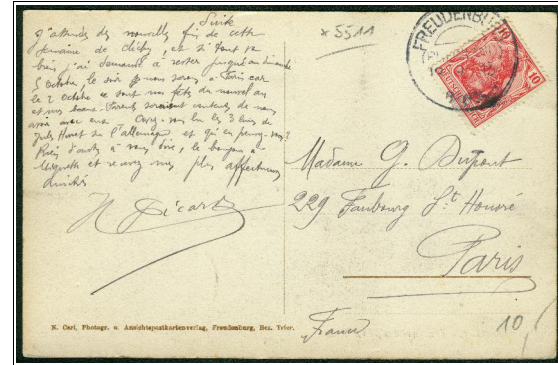 Suite
J'attends des nouvelles fin de cette
semaine de clichy, et si tout va
bien j'ai demandé à rester jusqu'au dimanche
5 octobre, le soir je nous serons à Paris car
le 2 octobre ce sont nos fêtes du nouvel an
et mes beaux-Parents seraient contents de nous
avoir avec eux. Avez-vous lu les 3 livres de
Jules Huret sur l'allemagne et qu'en pensez-vous?
Rien d'autre à vous dire, le bonjour à
et recevez mes plus affectueuses
Amitiés
Picard
* 5511
FREUDENBURG
10 10
DEUTSCHES REICH
Madame G. Dupont
229 Faubourg St Honoré
Paris
France
10,
N. Carl, Photogr. u. Ansichtspostkartenverlag, Freudenburg, Bez. Trier.